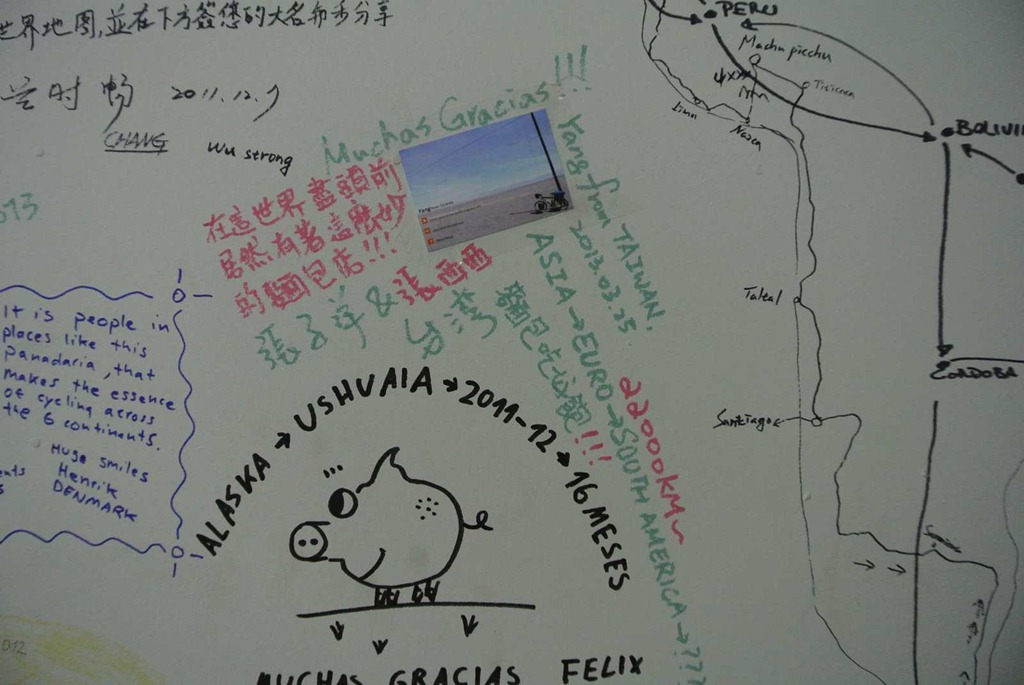 世界地图,並在下方簽您的大名和分享
2011.12.9
CHANG
Wu strong
013
Muchas Gracias!!!
在這世界盡頭前
居然有著這麼妙
的麵包店!!!
張子芊 & 張西西
台灣
Yang from TAIWAN.
2013.03.25
ASIA → EURO → SOUTH AMERICA → ???
22000KM~
It is people in
places like this
Panadaria, that
makes the essence
of cycling across
the 6 continents.
Huge smiles
Henrik
DENMARK
ALASKA → USHUAIA → 2011-12 → 16 MESES
MUCHAS GRACIAS FELIX
012
PERU
Machu picchu
Titicaca
Lima
Nazca
BOLIVI
Taltal
CORDOBA
Santiago